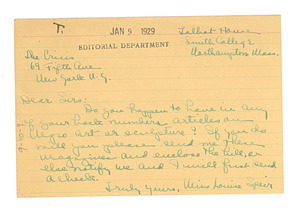 T.
JAN 9 1929
EDITORIAL DEPARTMENT
Talbot House
Smith College
Northampton Mass.
The Crisis
69 Fifth Ave
New York N.Y.
Dear Sirs:
Do you happen to have in any
of your back numbers articles on
Negro Art or sculpture? If you do
will you please send me these
magazines and enclose the bill, or
else notify me and I will first send
a check.
Truly yours, Miss Louise